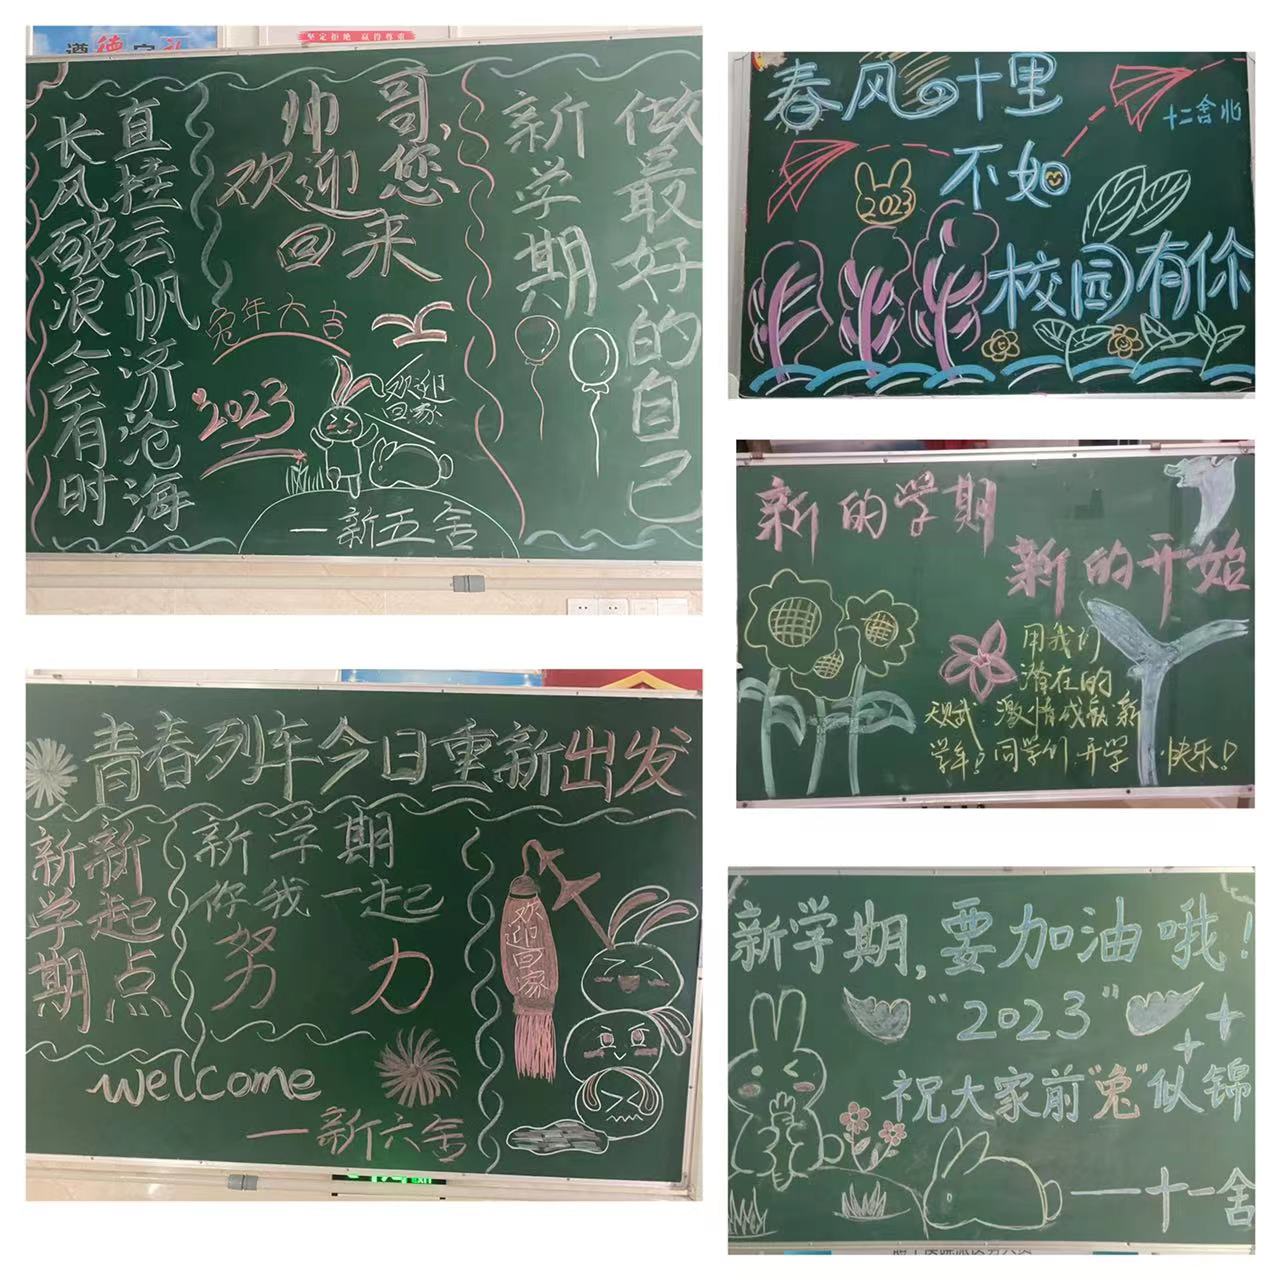 遵德守礼
坚定拒绝 赢得尊重
长风破浪会有时
直挂云帆济沧海
帅哥,
欢迎您
回来
兔年大吉
2023
欢迎
回家
一新五舍
新学期
做最好的自己
春风十里
十二舍北
不如
2023
校园有你
新的学期
新的开始
用我们
潜在的
激情成就新
学年!同学们开学快乐!
青春列车今日重新出发
新学期
新起点
新学期
你我一起
努力
欢迎回家
welcome
一新六舍
新学期,要加油哦!
"2023"
祝大家前"兔"似锦
——十一舍